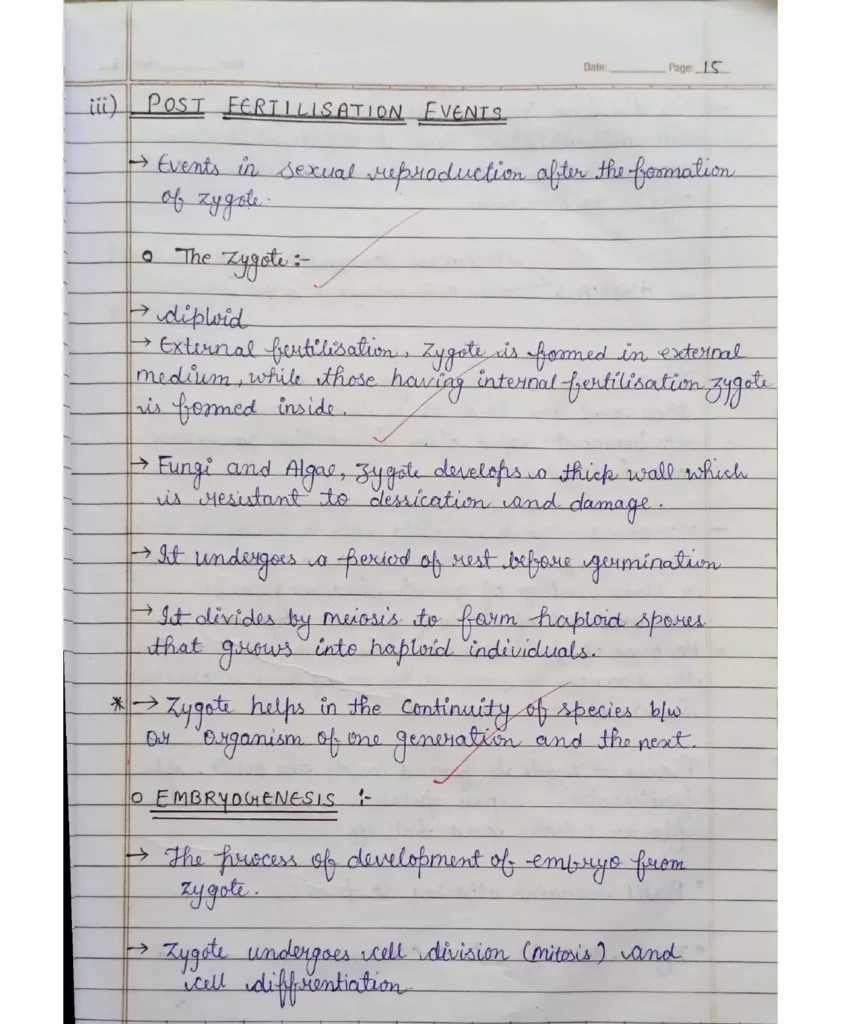 Date Page 15
iii) POST FERTILISATION EVENTS
→ Events in sexual reproduction after the formation
of zygote.
o The zygote :-
→ diploid
→ External fertilisation, zygote is formed in external
medium, while those having internal fertilisation zygote
is formed inside.
→ Fungi and Algae, zygote develops a thick wall which
is resistant to dessication and damage.
→ It undergoes a period of rest before germination
→ It divides by meiosis to form haploid spores
that grows into haploid individuals.
* → Zygote helps in the Continuity of species b/w
or organism of one generation and the next.
o EMBRYOGENESIS :-
→ The process of development of embryo from
zygote.
→ Zygote undergoes cell division (mitosis) and
cell diffrentiation